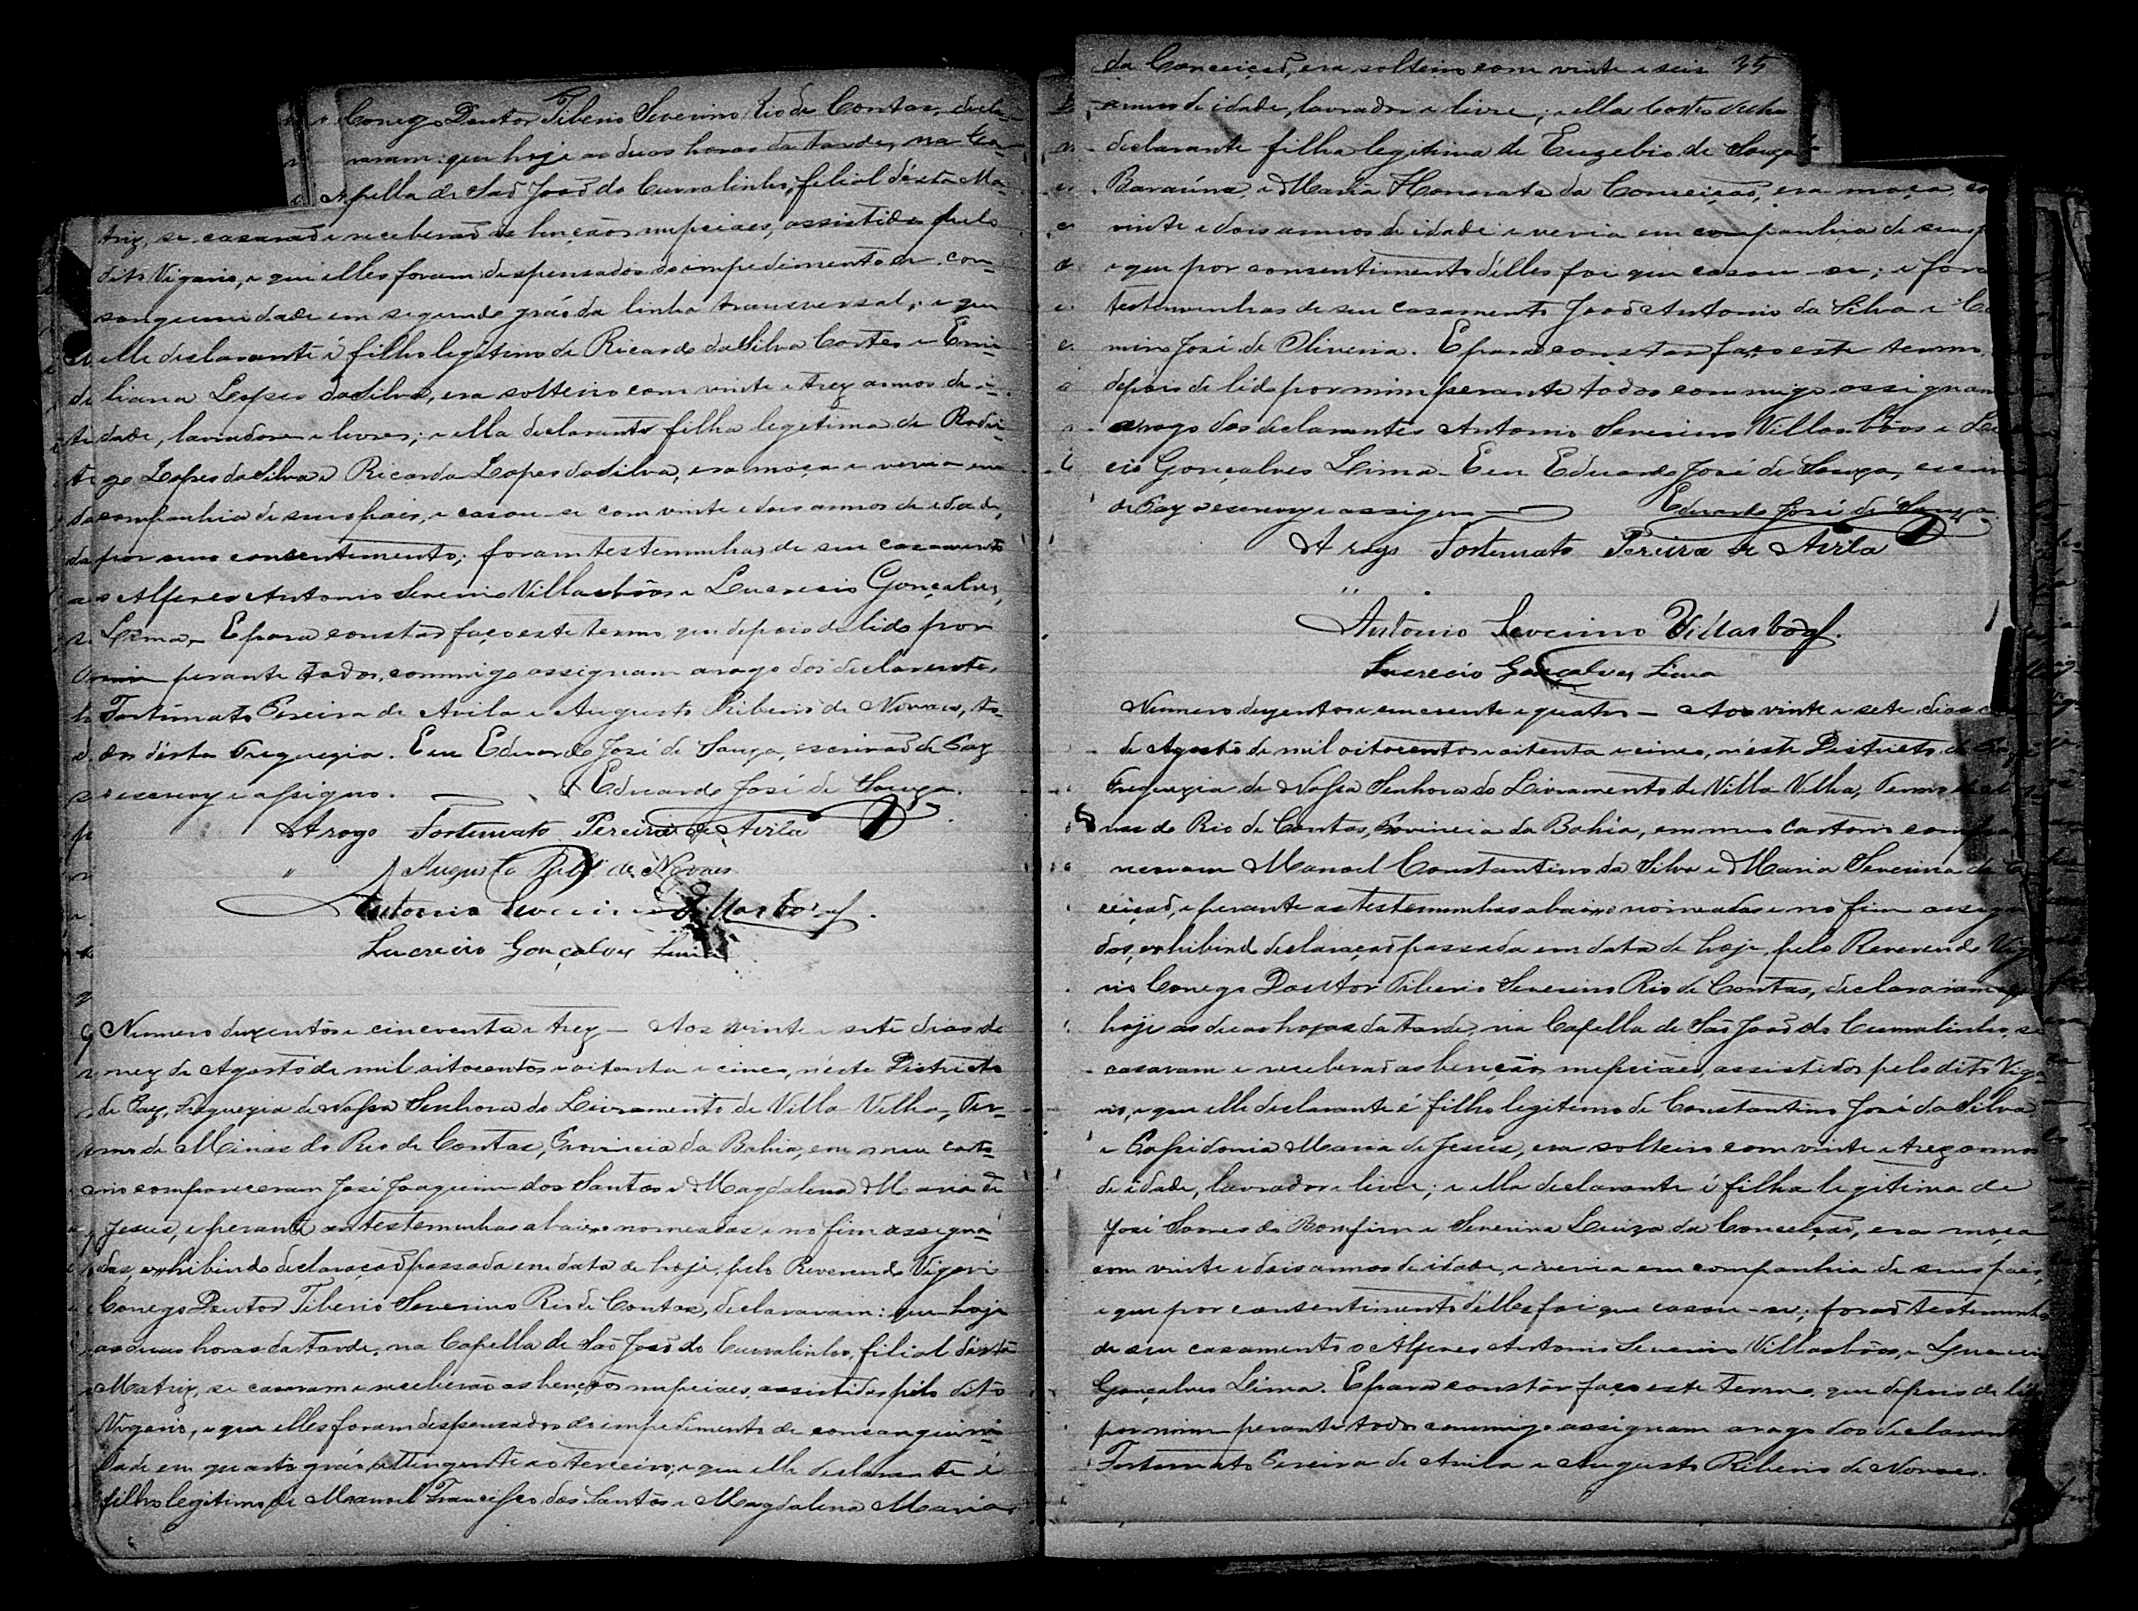 Conego Doutor Tiberio Severino Rio de Contas, decla-
raram: que hoje as duas horas da tarde, na Ca-
pella de São João do Curralinho, filial d'esta Ma-
triz, se casarão e receberão as bençãos nupciaes, assistidos pelo
dito Vigario, e que elles foram dispensados do impedimento de con-
sanguinidade em segundo gráo da linha transversal; e que
elle declarante é filho legitimo de Ricardo da Silva Cortes e Emi-
liana Lopes da Silva, era solteiro com vinte e trez annos de i-
dade, lavradores e livres; e ella declarante filha legitima de Rodri-
go Lopes da Silva e Ricarda Lopes da Silva, era moça e vevia em
companhia de seus pais, e casou-se com vinte e dois annos de idade,
por seus consentimento; foram testemunhas de seu casamento
o Alferes Antonio Severino Villasbôas e Lucrecio Gonçalves
Lima. E para constar faço este termo que depois de lido por
mim perante todos, commigo assignam arogo dos declarantes
Fortunato Pereira de Avila e Augusto Ribeiro de Novaes, to-
dos désta Freguezia. Eu Eduardo José de Souza, escrivão de Paz
o escrevy e assigno. Eduardo José de Souza.
Arogo Fortunato Pereira de Avila
" Augusto Rib.º de Novaes
Antonio Severino Villasboas.
Lucrecio Gonçalves Lima
Numero duzentos e cincoenta e trez — Aos vinte e sete dias do
mez de Agosto de mil oitocentos e oitenta e cinco, néste Districto
de Paz, Freguezia de Nossa Senhora do Livramento de Villa Velha, Ter-
mo de Minas do Rio de Contas, Provincia da Bahia, em meu carto-
rio compareceram José Joaquim dos Santos e Magdalena Maria de
Jesus, e perante as testemunhas abaixo nomeadas e no fim assigna-
das, exhibindo declaração passada em data de hoje, pelo Reverendo Vigario
Conego Doutor Tiberio Severino Rio de Contas, declararam: que hoje
as duas horas da tarde, na Capella de São João do Curralinho, filial désta
Matriz, se casaram e receberão as bençãos nupciaes, assistidos pelo dito
Vigario, e que elles foram dispensados do impedimento de consanguini-
dade em quarto gráo attingente ao terceiro; e que elle declarante é
filho legitimo de Manoel Francisco dos Santos e Magdalena Maria
da Conceição, era solteiro com vinte e seis 35
annos de idade, lavrador e livre; e ella
declarante filha legitima de Euzebio de Souza
Baraúna, e Maria Honorata da Conceição, era moça, co
vinte e dois annos de idade e vevia em companhia de seus p
e que por consentimento d'elles foi que casou-se; e fora
testemunhas de seu casamento João Antonio da Silva e
mino José de Oliveira. E para constar faço este termo
depois de lido por mim perante todos commigo assignam
arogo dos declarantes Antonio Severino Villasbôas e Lu
cio Gonçalves Lima. E eu Eduardo José de Souza, escriv
de Paz o escrevy e assigno — Eduardo José de Souza
Arogo Fortunato Pereira de Avila
"
Antonio Severino Villasboas.
Lucrecio Gonçalves Lima
Numero duzentos e cincoenta e quatro — Aos vinte e sete dias
de Agosto de mil oitocentos e oitenta e cinco, néste Districto de Paz
Freguezia de Nossa Senhora do Livramento de Villa Velha, Termo de Mi
nas do Rio de Contas, Provincia da Bahia, em meu cartorio compa
receram Manoel Constantino da Silva e Maria Severina da Con
ceição, e perante as testemunhas abaixo nomeadas e no fim assigna
das, exhibindo declaração passada em data de hoje, pelo Reverendo Viga
rio Conego Doutor Tiberio Severino Rio de Contas, declararam: que
hoje as duas horas da tarde, na Capella de São João do Curralinho, se
casaram e receberão as bençãos nupciaes, assistidos pelo dito Viga-
rio, e que elle declarante é filho legitimo de Constantino José da Silva
e Cassidonia Maria de Jesus, era solteiro com vinte e trez annos
de idade, lavrador e livre; e ella declarante é filha legitima de
José Soares do Bomfim e Severina Luiza da Conceição, era moça
com vinte e dois annos de idade, e vevia em companhia de seus pais,
e que por consentimento d'elles foi que casou-se; forão testemunhas
de seu casamento o Alferes Antonio Severino Villasbôas, e Lucrecio
Gonçalves Lima. E para constar faço este termo, que depois de lido
por mim perante todos commigo assignam arogo dos declarant
Fortunato Pereira de Avila e Augusto Ribeiro de Novaes.